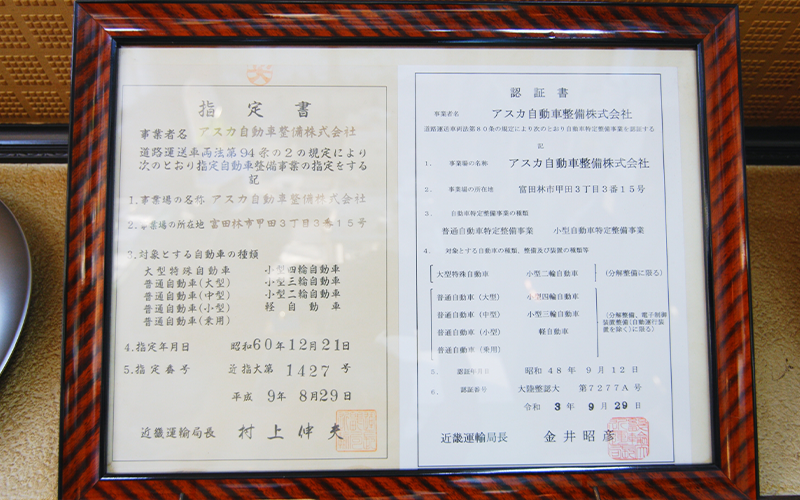 指定書
事業者名 アスカ自動車整備株式会社
道路運送車両法第94条の2の規定により
次のとおり指定自動車整備事業の指定をする
記
1.事業場の名称 アスカ自動車整備株式会社
2.事業場の所在地 富田林市甲田3丁目3番15号
3.対象とする自動車の種類
大型特殊自動車 小型四輪自動車
普通自動車(大型) 小型三輪自動車
普通自動車(中型) 小型二輪自動車
普通自動車(小型) 軽自動車
普通自動車(乗用)
4.指定年月日 昭和60年12月21日
5.指定番号 近指大第1427号
平成 9年 8月29日
近畿運輸局長 村上伸夫
認証書
事業者名 アスカ自動車整備株式会社
道路運送車両法第80条の規定により次のとおり自動車特定整備事業を認証する
記
1. 事業場の名称 アスカ自動車整備株式会社
2. 事業場の所在地 富田林市甲田3丁目3番15号
3. 自動車特定整備事業の種類
普通自動車特定整備事業 小型自動車特定整備事業
4. 対象とする自動車の種類、整備及び装置の種類等
大型特殊自動車 小型二輪自動車 (分解整備に限る)
普通自動車(大型) 小型四輪自動車
普通自動車(中型) 小型三輪自動車
普通自動車(小型) 軽自動車
普通自動車(乗用)
(分解整備、電子制御
装置整備(自動運行装
置を除く)に限る)
5. 認証年月日 昭和 48年 9月 12日
6. 認証番号 大陸整認大 第7277A号
令和 3年 9月 29日
近畿運輸局長 金井昭彦